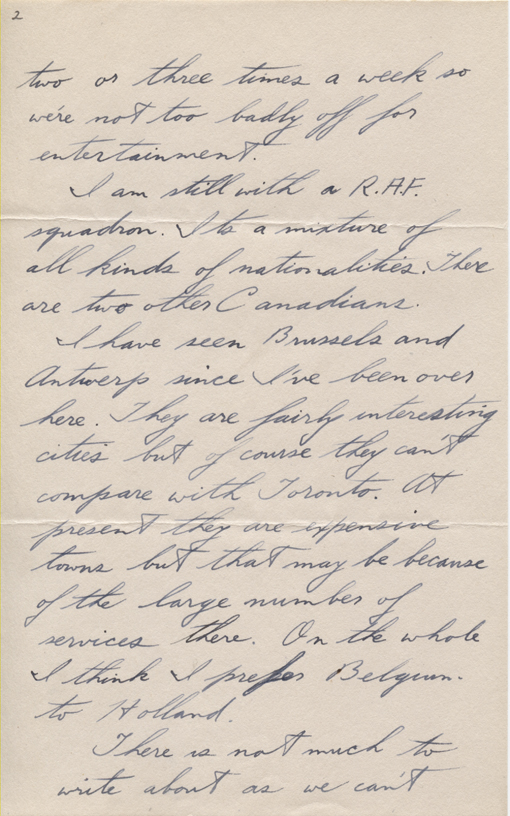 2
two or three times a week so
we're not too badly off for
entertainment.
I am still with a R.A.F.
squadron. Its a mixture of
all kinds of nationalities. There
are two other Canadians.
I have seen Brussels and
Antwerp since I've been over
here. They are fairly interesting
cities but of course they can't
compare with Toronto. At
present they are expensive
towns but that may be because
of the large number of
services there. On the whole
I think I prefer Belgium
to Holland.
There is not much to
write about as we can't